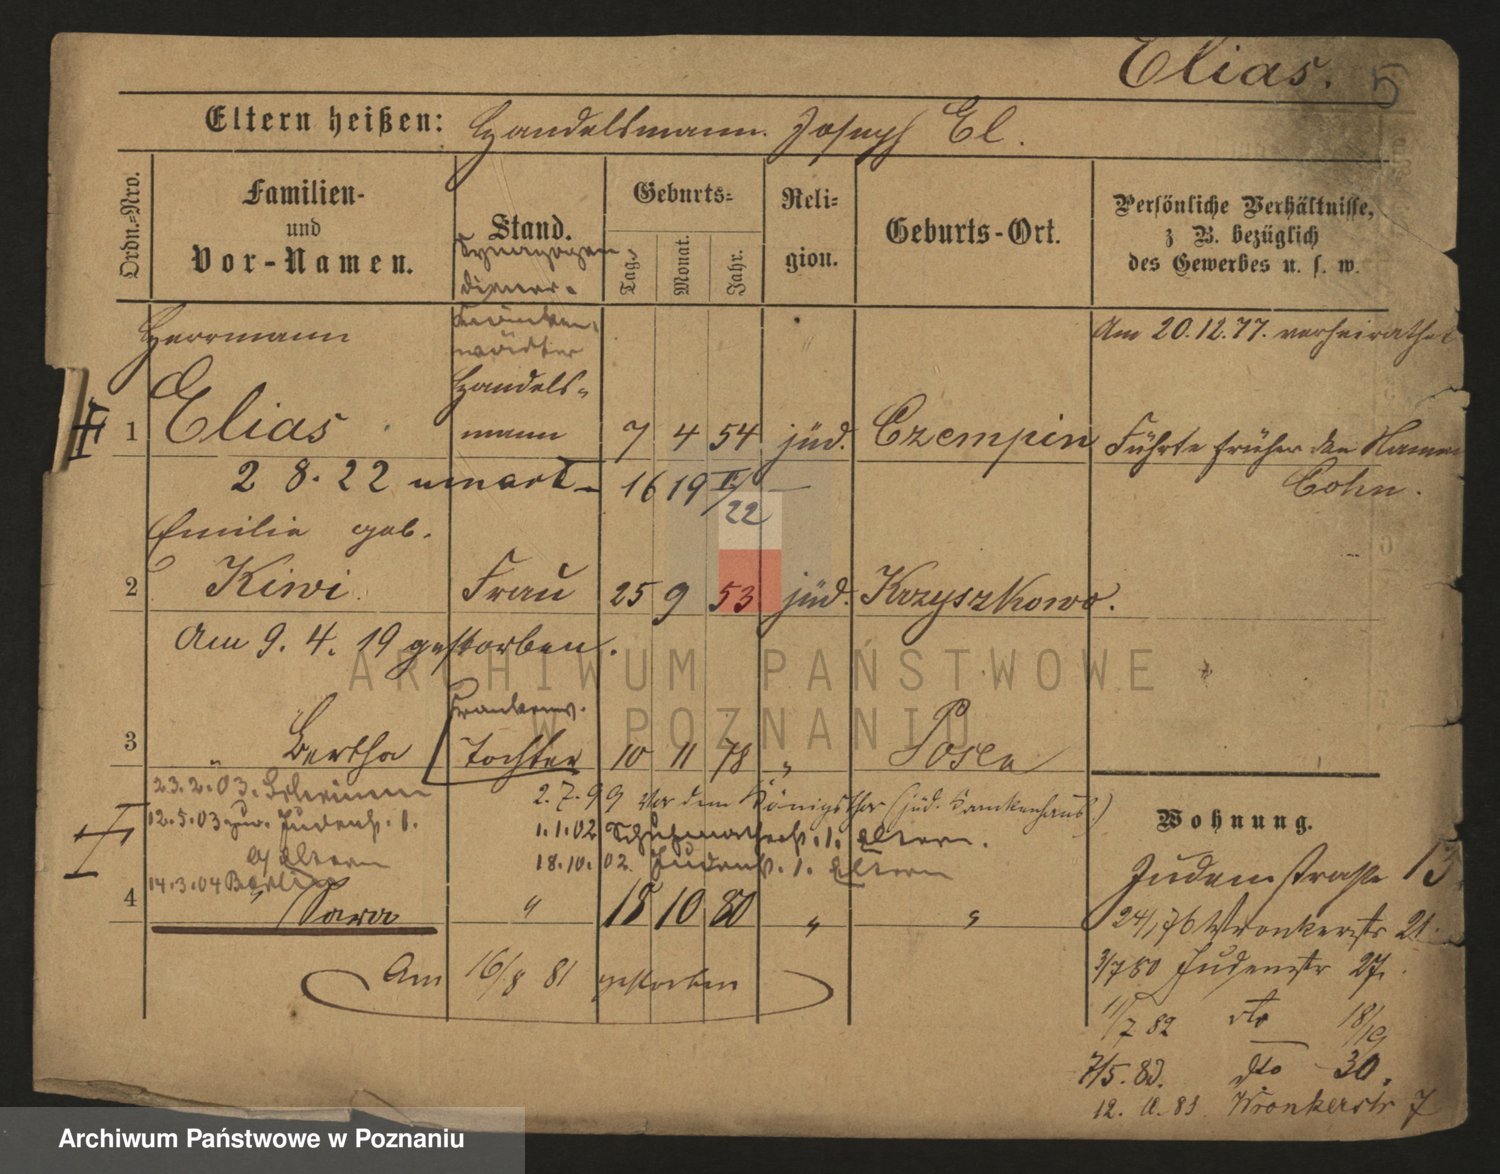 Elias. 5
Eltern heißen: Handelsmann Joseph El.
Ordn.-Nro.
Familien-
und
Vor-Namen.
Stand.
Geburts-
Tag.
Monat.
Jahr.
Reli-
gion.
Geburts-Ort.
Persönliche Verhältnisse,
z B. bezüglich
des Gewerbes u. s. w.
Synagogen
diener.
Kranken-
wärter
Herrmann
Am 20.12.77. verheirathet
Handels-
1 Elias mann 7 4 54 jüd. Czempin Führte früher den Namen
Cohn.
2 8. 22 16 19 II/22
Emilie geb.
2 Kiwi Frau 25 9 53 jüd. Krzyszkowo.
Am 9. 4. 19 gestorben.
3 Bertha Tochter 10 11 78 " Posen
23.2.03.
2.7.99 Vor dem Königsthor (jüd. Krankenhaus)
12.5.03 zur. Judenstr. 1.
1.1.02 1. Eltern.
b/ Eltern
18.10.02 Judenstr. 1. Eltern
14.3.04 Berlin
4 " Sara " 18 10 80 " "
Am 16/8 81 gestorben
Wohnung.
Judenstraße 13.
24/1 76 Wronkerstr 21
3/7 80 Judenstr 27.
11/7 82 dto 18/19
7/5. 83. dto 30.
12. 83 Wronkerstr 7
ARCHIWUM PAŃSTWOWE
W POZNANIU
Archiwum Państwowe w Poznaniu